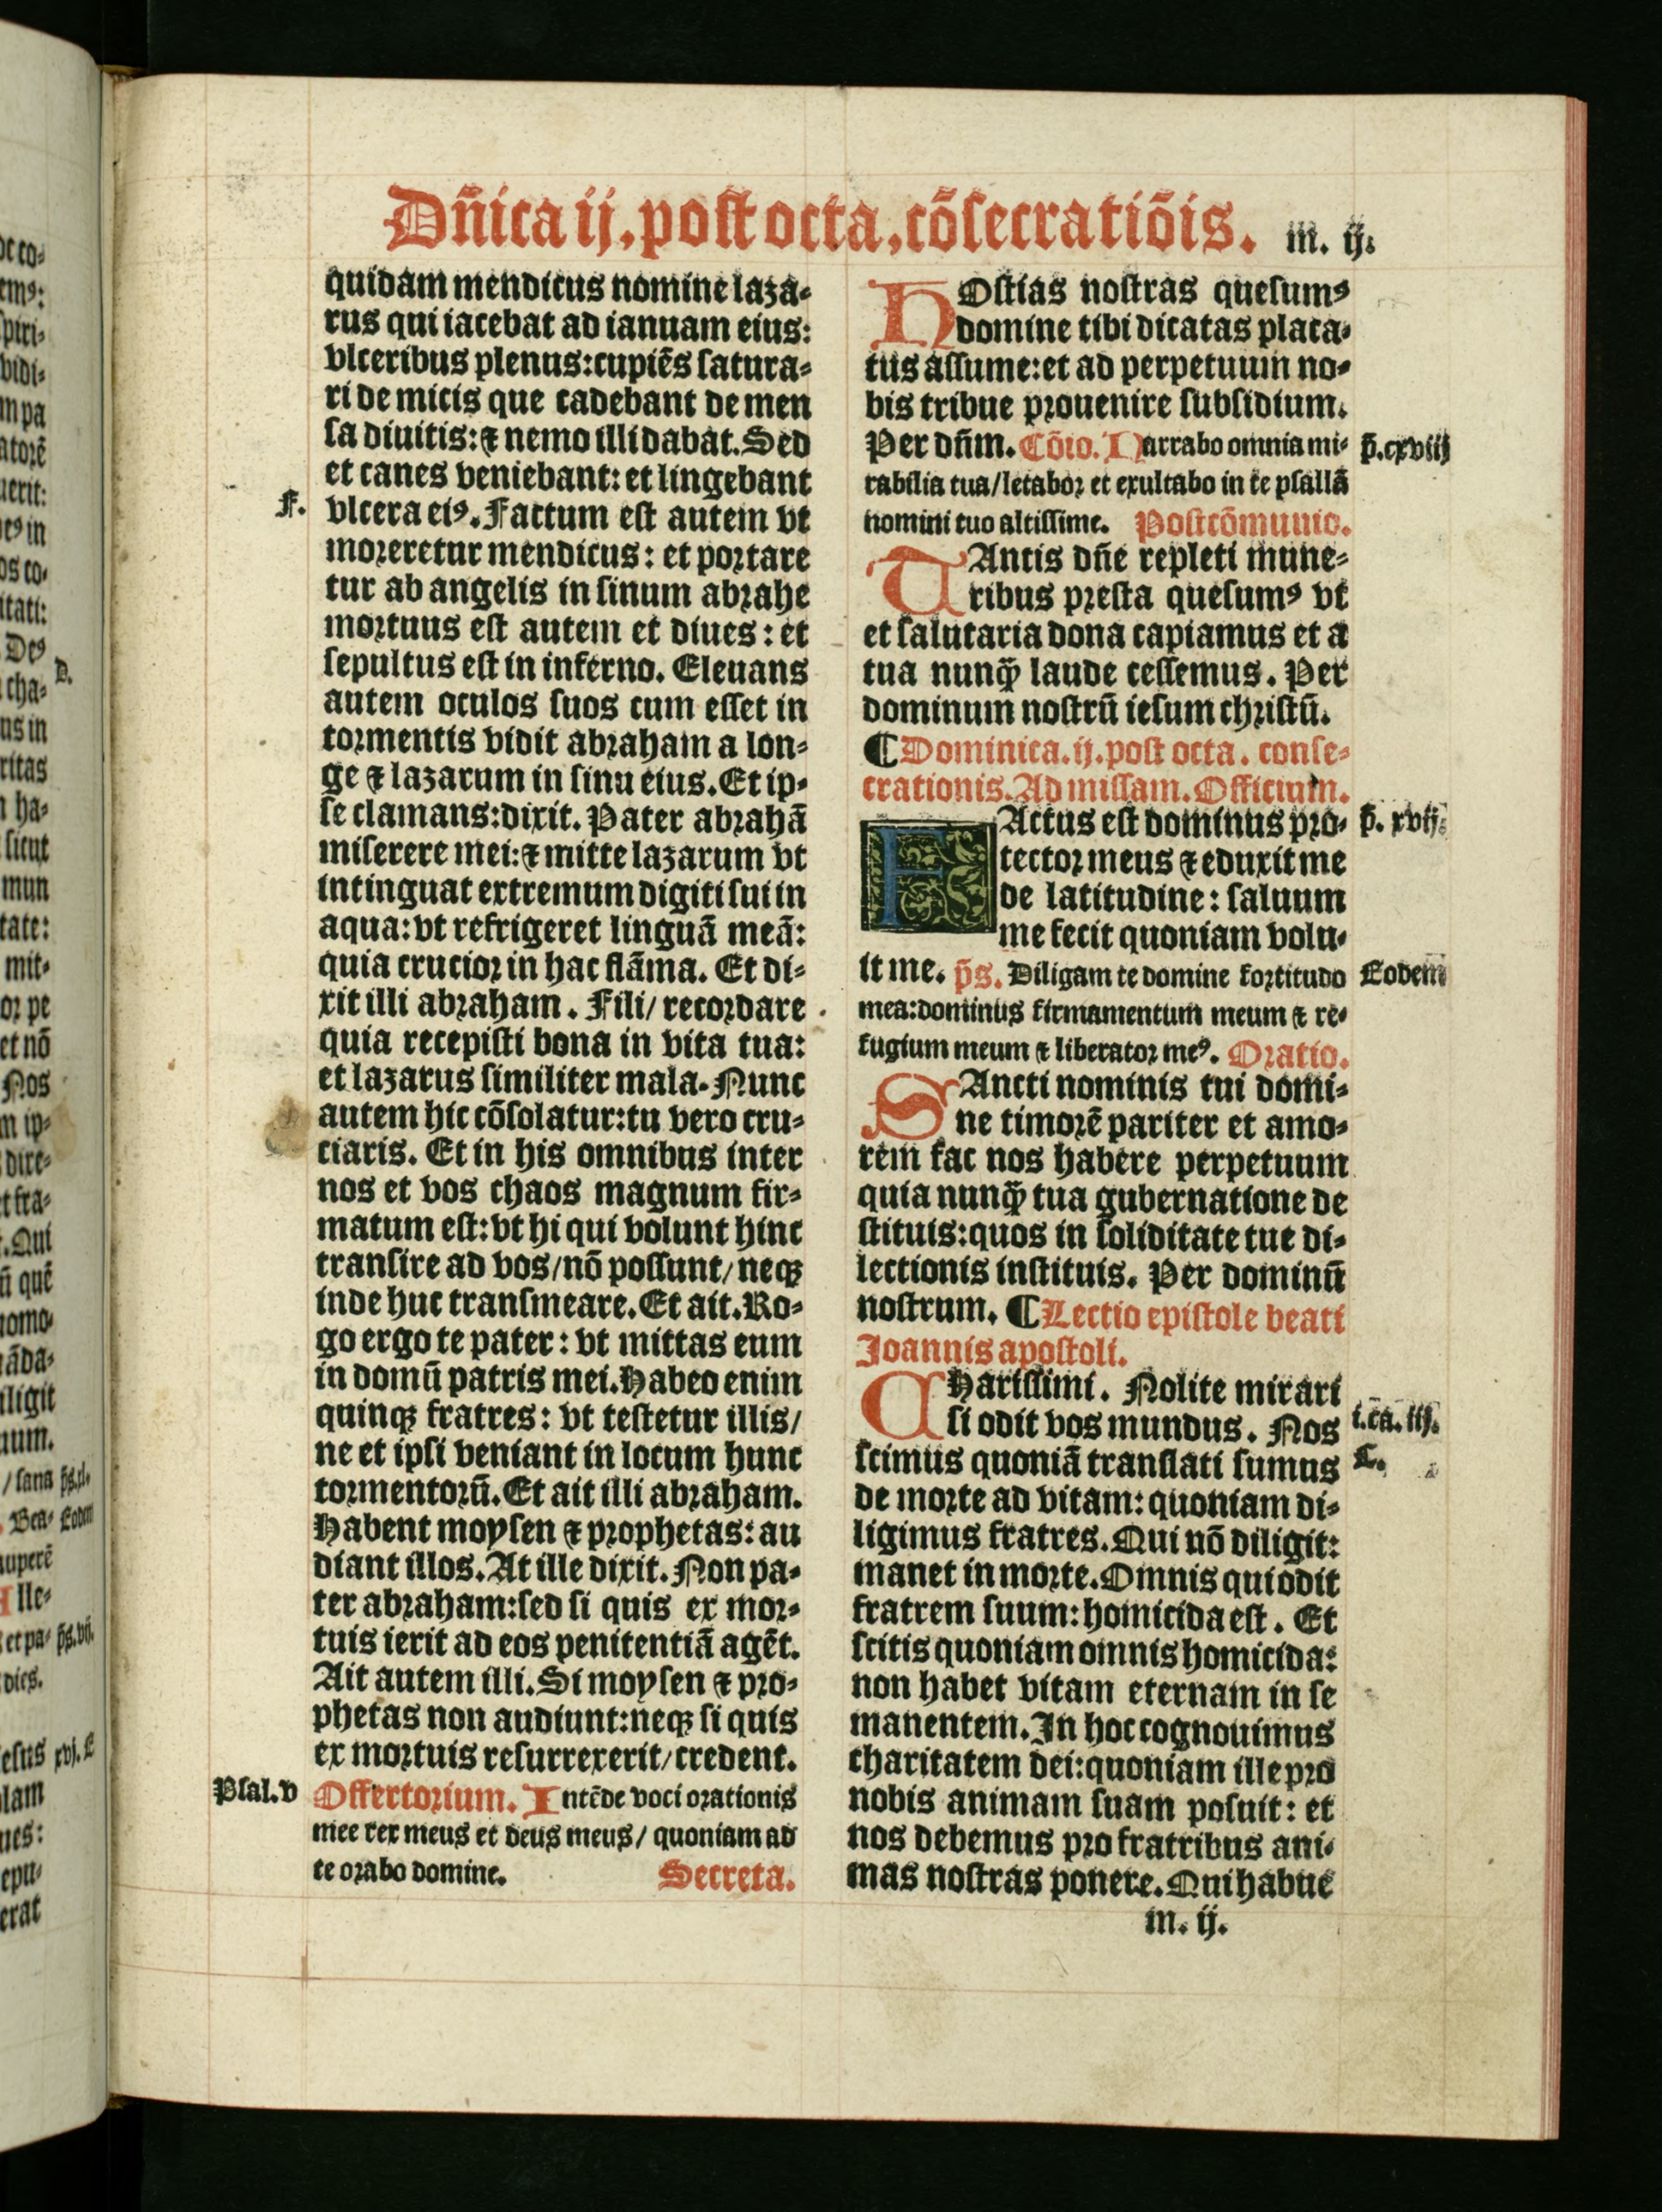 Dñica ij. post octa. cõsecratiõis. m. ij.
quidam mendicus nomine laza-
rus qui iacebat ad ianuam eius:
vlceribus plenus: cupiẽs satura-
ri de micis que cadebant de men
sa diuitis: ⁊ nemo illi dabat. Sed
et canes veniebant: et lingebant
F. vlcera eiꝰ. Factum est autem vt
moreretur mendicus: et portare
tur ab angelis in sinum abrahe
mortuus est autem et diues: et
sepultus est in inferno. Eleuans
autem oculos suos cum esset in
tormentis vidit abraham a lon-
ge ⁊ lazarum in sinu eius. Et ip-
se clamans: dixit. Pater abrahã
miserere mei: ⁊ mitte lazarum vt
intinguat extremum digiti sui in
aqua: vt refrigeret linguã meã:
quia crucior in hac flãma. Et di-
xit illi abraham. Fili/ recordare
quia recepisti bona in vita tua:
et lazarus similiter mala. Nunc
autem hic cõsolatur: tu vero cru-
ciaris. Et in his omnibus inter
nos et vos chaos magnum fir-
matum est: vt hi qui volunt hinc
transire ad vos/ nõ possunt/ neqꝫ
inde huc transmeare. Et ait. Ro-
go ergo te pater: vt mittas eum
in domũ patris mei. Habeo enim
quinqꝫ fratres: vt testetur illis/
ne et ipsi veniant in locum hunc
tormentorũ. Et ait illi abraham.
Habent moysen ⁊ prophetas: au
diant illos. At ille dixit. Non pa-
ter abraham: sed si quis ex mor-
tuis ierit ad eos penitentiã agẽt.
Ait autem illi. Si moysen ⁊ pro-
phetas non audiunt: neqꝫ si quis
ex mortuis resurrexerit/ credent.
Psal. v Offertorium. Intẽde voci orationis
mee rex meus et deus meus/ quoniam ad
te orabo domine. Secreta.
HOstias nostras quesumꝰ
domine tibi dicatas placa-
tus assume: et ad perpetuum no-
bis tribue prouenire subsidium.
Per dñm. Cõio. Narrabo omnia mi- p̃. cxviij
rabilia tua/ letabor et exultabo in te psallã
nomini tuo altissime. Postcõmunio.
TAntis dñe repleti mune-
ribus presta quesumꝰ vt
et salutaria dona capiamus et a
tua nunqꝫ̃ laude cessemus. Per
dominum nostrũ iesum christũ.
¶ Dominica. ij. post octa. conse-
crationis. Ad missam. Officium.
FActus est dominus pro- p̃. xvij.
tector meus ⁊ eduxit me
de latitudine: saluum
me fecit quoniam volu-
it me. p̃s. Diligam te domine fortitudo Eodem
mea: dominus firmamentum meum ⁊ re-
fugium meum ⁊ liberator meꝰ. Oratio.
SAncti nominis tui domi-
ne timorẽ pariter et amo-
rem fac nos habere perpetuum
quia nunqꝫ̃ tua gubernatione de
stituis: quos in soliditate tue di-
lectionis instituis. Per dominũ
nostrum. ¶ Lectio epistole beati
Joannis apostoli.
CHarissimi. Nolite mirari
si odit vos mundus. Nos i. cã. iij.
scimus quoniã translati sumus C.
de morte ad vitam: quoniam di-
ligimus fratres. Qui nõ diligit:
manet in morte. Omnis qui odit
fratrem suum: homicida est. Et
scitis quoniam omnis homicida:
non habet vitam eternam in se
manentem. In hoc cognouimus
charitatem dei: quoniam ille pro
nobis animam suam posuit: et
nos debemus pro fratribus ani-
mas nostras ponere. Qui habue
m. ij.